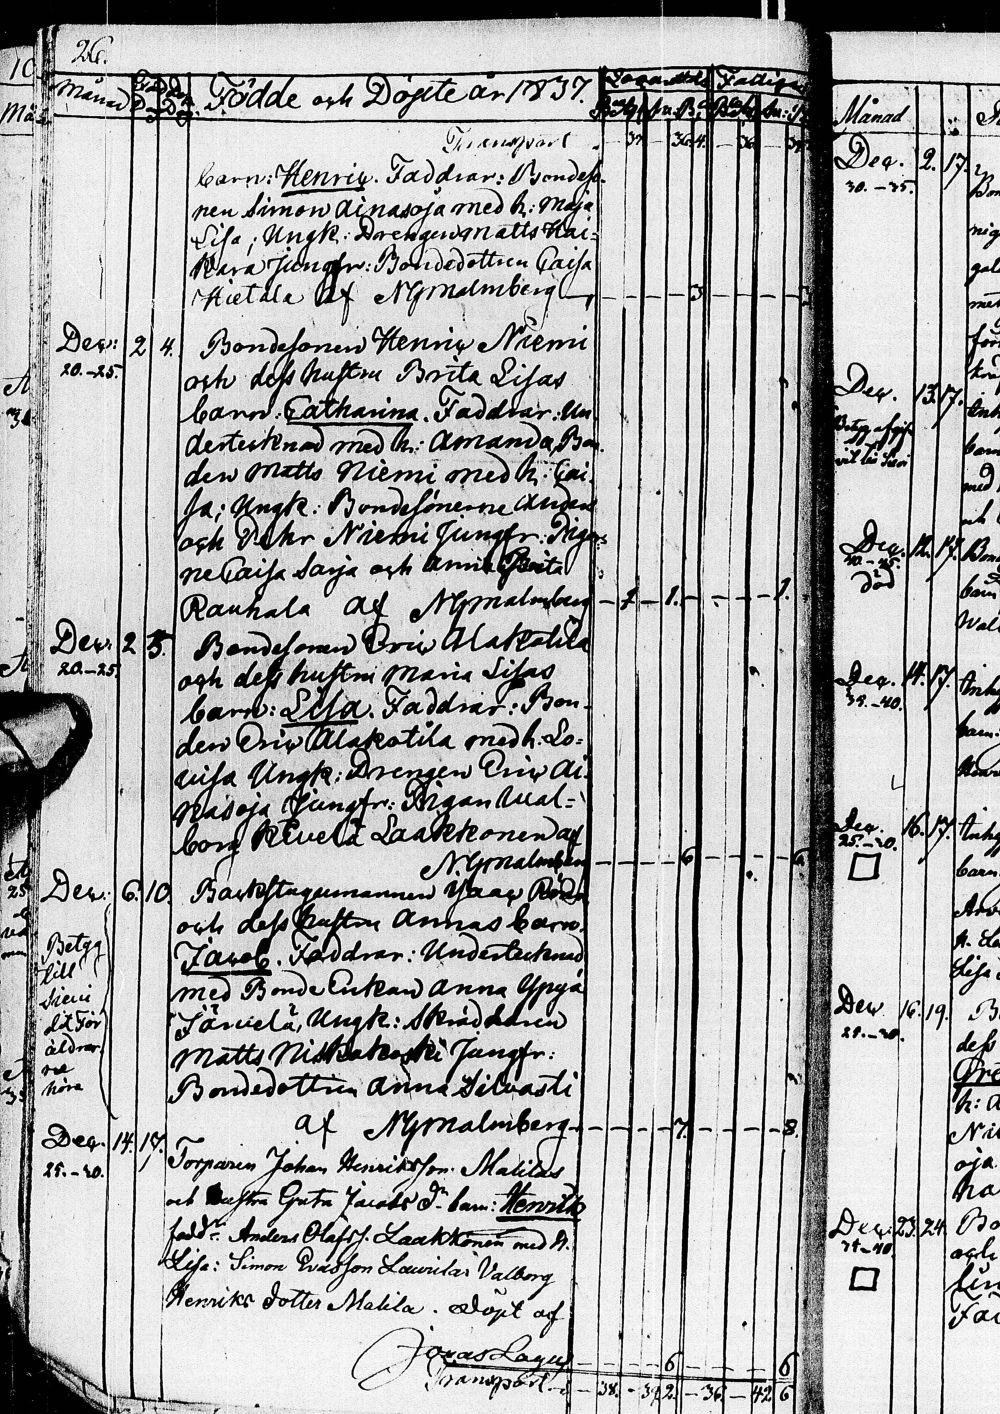 26.
Månad
Födde och Döpte år 1837.
Transport
barn: Henric. Faddrar: Bondeso-
nen Simon Ainasoja med h: Maja
Lisa; Ungk: Drengen Matts Kai-
kara Jungfr: Bondedottren Caisa
Hietala af NGMalmberg
Dec: 2 4. Bondesonen Henric Niemi
20.-25. och dess hustru Brita Lisas
barn: Catharina. Faddrar: Un
dertecknad med h: Amanda, Bon
den Matts Niemi med h: Cai-
sa; Ungk: Bondesönerne Anders
och Petter Niemi Jungfr: Pigor-
ne Caisa Sarja och Anna Brita
Rauhala af NGMalmberg 1 1. 1.
Dec: 2 5. Bondesonen Eric Alakotila
20.-25. och dess hustru Maria Lisas
barn: Lisa. Faddrar: Bon-
den Eric Alakotila med h: Lo-
visa Ungk: Drengen Eric Ai-
nasoja Jungfr: Pigan Wal-
borg Kevelä Laakkonen af
N.GMalmberg 6 6
Dec: 6. 10. Backstugumannen
och dess hustru Annas barn.
Betyg Jacob. Faddrar: Undertecknad
till med Bonde Enkan Anna Ypyä
Sievi Järvelä, Ungk: Skräddaren
dit För Matts Niskakoski Jungfr:
äldrar- Bondedottren Anna Silvasti
ne
höra
af NGMalmberg 7. 8.
Dec. 14. 17. Torparen Johan Henriksson Malilas
25.-30. och hustru Greta Jacobs Dr barn: Henrik
fadd: Anders Olofss. Laakkonen med h.
Lisa: Simon Ersson Laurilas Valborg
Henriks dotter Malila. Döpt af
Jonas Lagus 6 6
Transport 38. 39 2. 36. 42 6
Månad
Dec. 2. 17.
30.-35.
Dec. 13. 17.
Dec. 12. 17.
död
Dec. 14. 17.
35.-40.
Dec. 16. 17.
25.-30.
Dec 16. 19.
Dec: 23. 24.